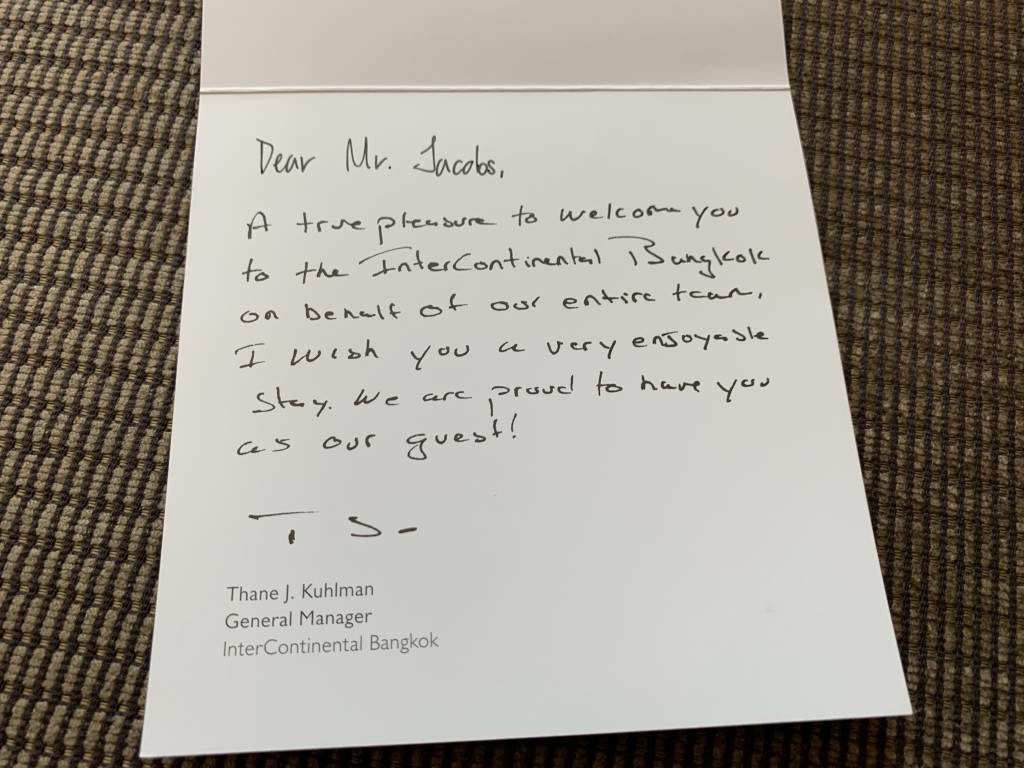 Dear Mr. Jacobs,
A true pleasure to welcome you
to the InterContinental Bangkok
on behalf of our entire team.
I wish you a very enjoyable
stay. We are proud to have you
as our guest!
Thane J. Kuhlman
General Manager
InterContinental Bangkok